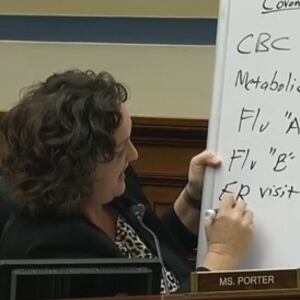 Coron
CBC
Metabolic
Flu "A
Flu "B"
ER visit
MS. PORTER